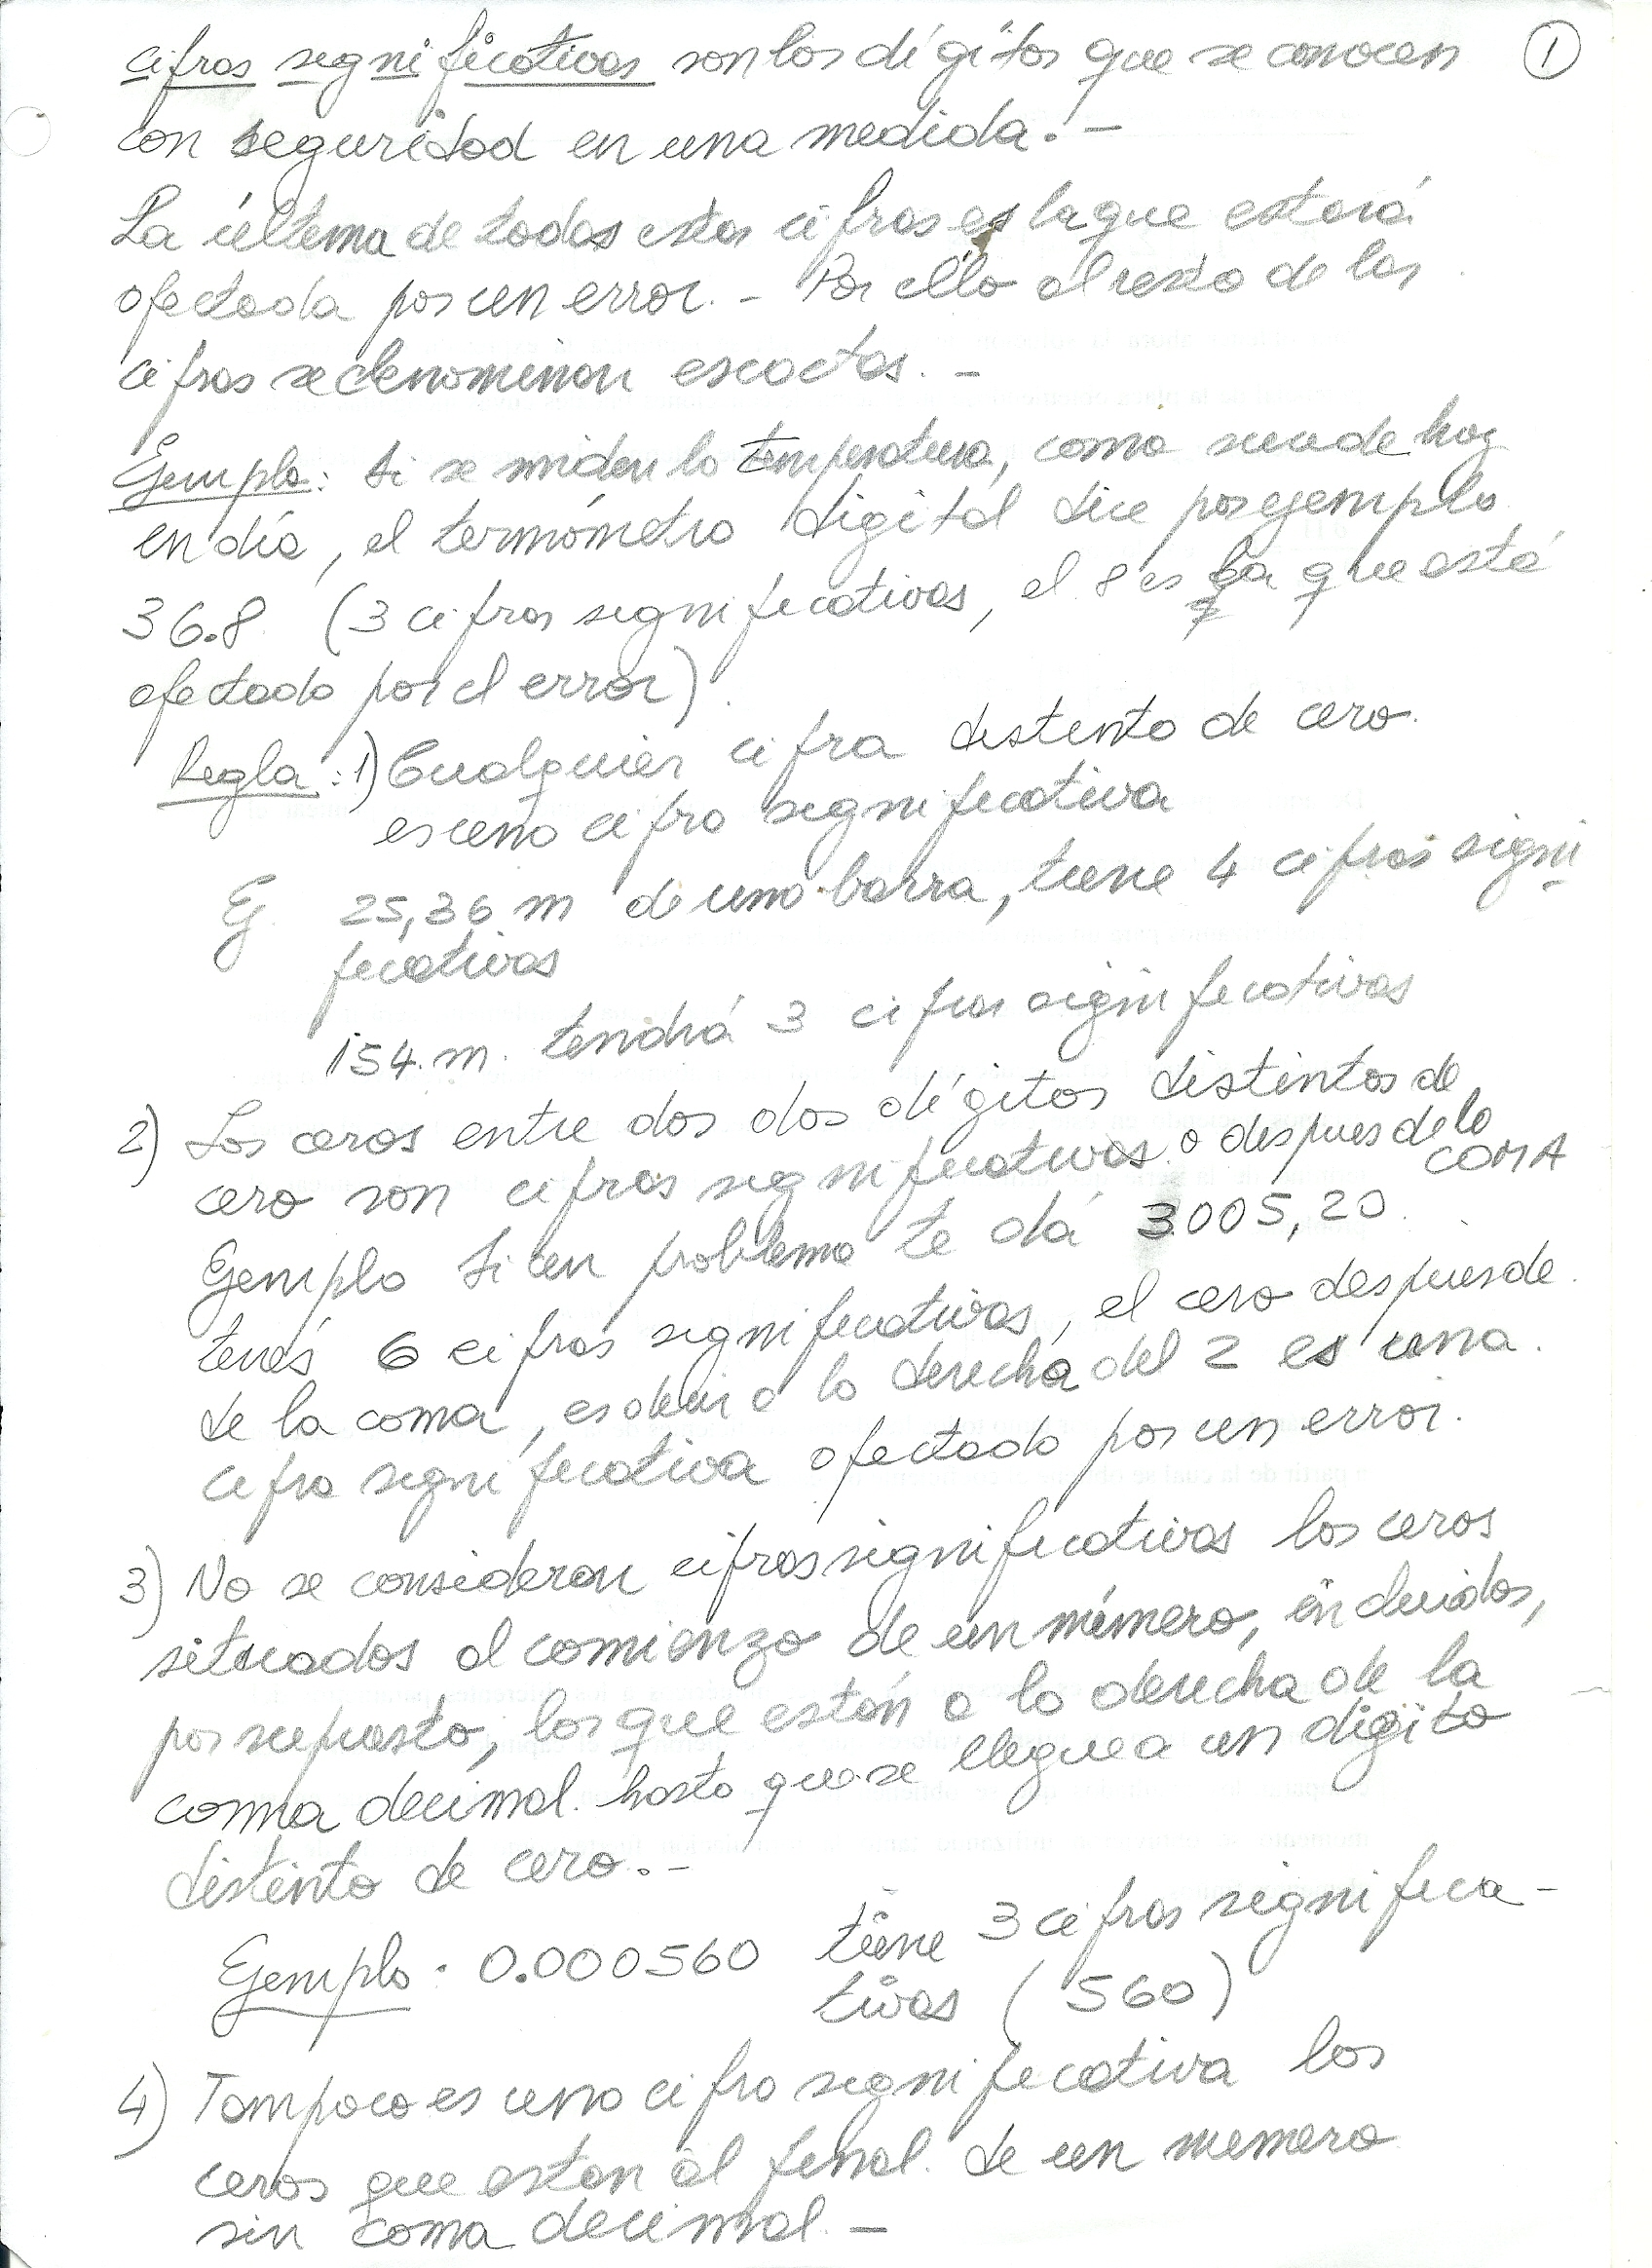 cifras significativas son los dígitos que se conocen 1
con seguridad en una medida.-
La última de todas estas cifras es la que estará
afectada por un error.- Por ello al resto de las
cifras se denominan exactas.-
Ejemplo: Si se miden la temperatura, como sucede hoy
en día, el termómetro digital dice por ejemplo
36.8 (3 cifras significativas, el 8 es la que está
afectado por el error).
Regla: 1) Cualquier cifra distinto de cero
es una cifra significativa
Ej 25,36 m de una barra, tiene 4 cifras signi
ficativas
154.m. tendrá 3 cifras significativas
2) Los ceros entre dos dos dígitos distintos de
cero son cifras significativas o despues de la
COMA
Ejemplo Si un problema te dá 3005,20.
tenés 6 cifras significativas, el cero despues de
de la coma, es decir a la derecha del 2 es una
cifra significativa afectado por un error.
3) No se consideran cifras significativas los ceros
situados al comienzo de un número, incluidos,
por supuesto, los que están a la derecha de la
coma decimal. hasta que se llegue a un digito
distinto de cero.-
Ejemplo: 0.000560 tiene 3 cifras significa-
tivas (560)
4) Tampoco es una cifra significativa los
ceros que estan al final. de un numero
sin coma decimal.-